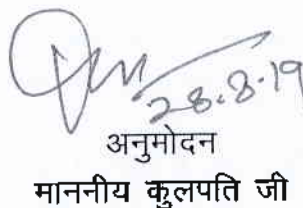 28.8.19
अनुमोदन
माननीय कुलपति जी